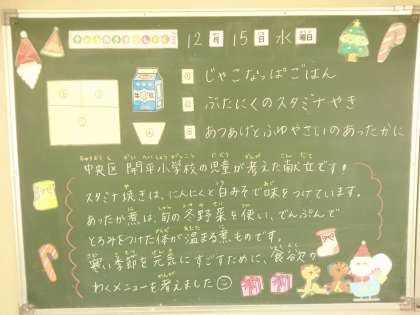 12月15日水曜日
① じゃこなっぱごはん
② ぶたにくのスタミナやき
③ あつあげとふゆやさいのあったかに
中央区 開平小学校の児童が考えた献立です!
スタミナ焼きは、にんにくと白みそで味をつけています。
あったか煮は、旬の冬野菜を使い、でんぷんで
とろみをつけた体が温まる煮ものです。
寒い季節を元気にすごすために、食欲が
わくメニューを考えました